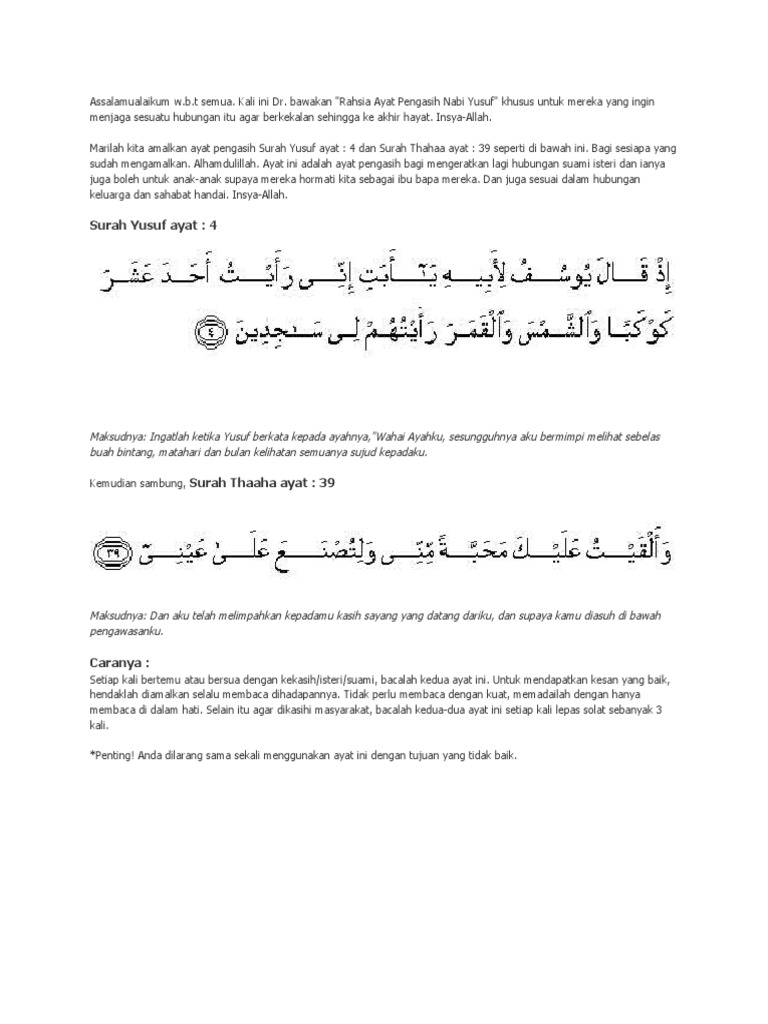 Assalamualaikum w.b.t semua. Kali ini Dr. bawakan "Rahsia Ayat Pengasih Nabi Yusuf" khusus untuk mereka yang ingin
menjaga sesuatu hubungan itu agar berkekalan sehingga ke akhir hayat. Insya-Allah.
Marilah kita amalkan ayat pengasih Surah Yusuf ayat : 4 dan Surah Thahaa ayat : 39 seperti di bawah ini. Bagi sesiapa yang
sudah mengamalkan. Alhamdulillah. Ayat ini adalah ayat pengasih bagi mengeratkan lagi hubungan suami isteri dan ianya
juga boleh untuk anak-anak supaya mereka hormati kita sebagai ibu bapa mereka. Dan juga sesuai dalam hubungan
keluarga dan sahabat handai. Insya-Allah.
Surah Yusuf ayat : 4
إِذْ قَالَ يُوسُفُ لِأَبِيهِ يَـٰٓأَبَتِ إِنِّى رَأَيْتُ أَحَدَ عَشَرَ
كَوْكَبًا وَٱلشَّمْسَ وَٱلْقَمَرَ رَأَيْتُهُمْ لِى سَـٰجِدِينَ ٤
Maksudnya: Ingatlah ketika Yusuf berkata kepada ayahnya,"Wahai Ayahku, sesungguhnya aku bermimpi melihat sebelas
buah bintang, matahari dan bulan kelihatan semuanya sujud kepadaku.
Kemudian sambung, Surah Thaaha ayat : 39
وَأَلْقَيْتُ عَلَيْكَ مَحَبَّةً مِّنِّى وَلِتُصْنَعَ عَلَىٰ عَيْنِىٓ ٣٩
Maksudnya: Dan aku telah melimpahkan kepadamu kasih sayang yang datang dariku, dan supaya kamu diasuh di bawah
pengawasanku.
Caranya :
Setiap kali bertemu atau bersua dengan kekasih/isteri/suami, bacalah kedua ayat ini. Untuk mendapatkan kesan yang baik,
hendaklah diamalkan selalu membaca dihadapannya. Tidak perlu membaca dengan kuat, memadailah dengan hanya
membaca di dalam hati. Selain itu agar dikasihi masyarakat, bacalah kedua-dua ayat ini setiap kali lepas solat sebanyak 3
kali.
*Penting! Anda dilarang sama sekali menggunakan ayat ini dengan tujuan yang tidak baik.